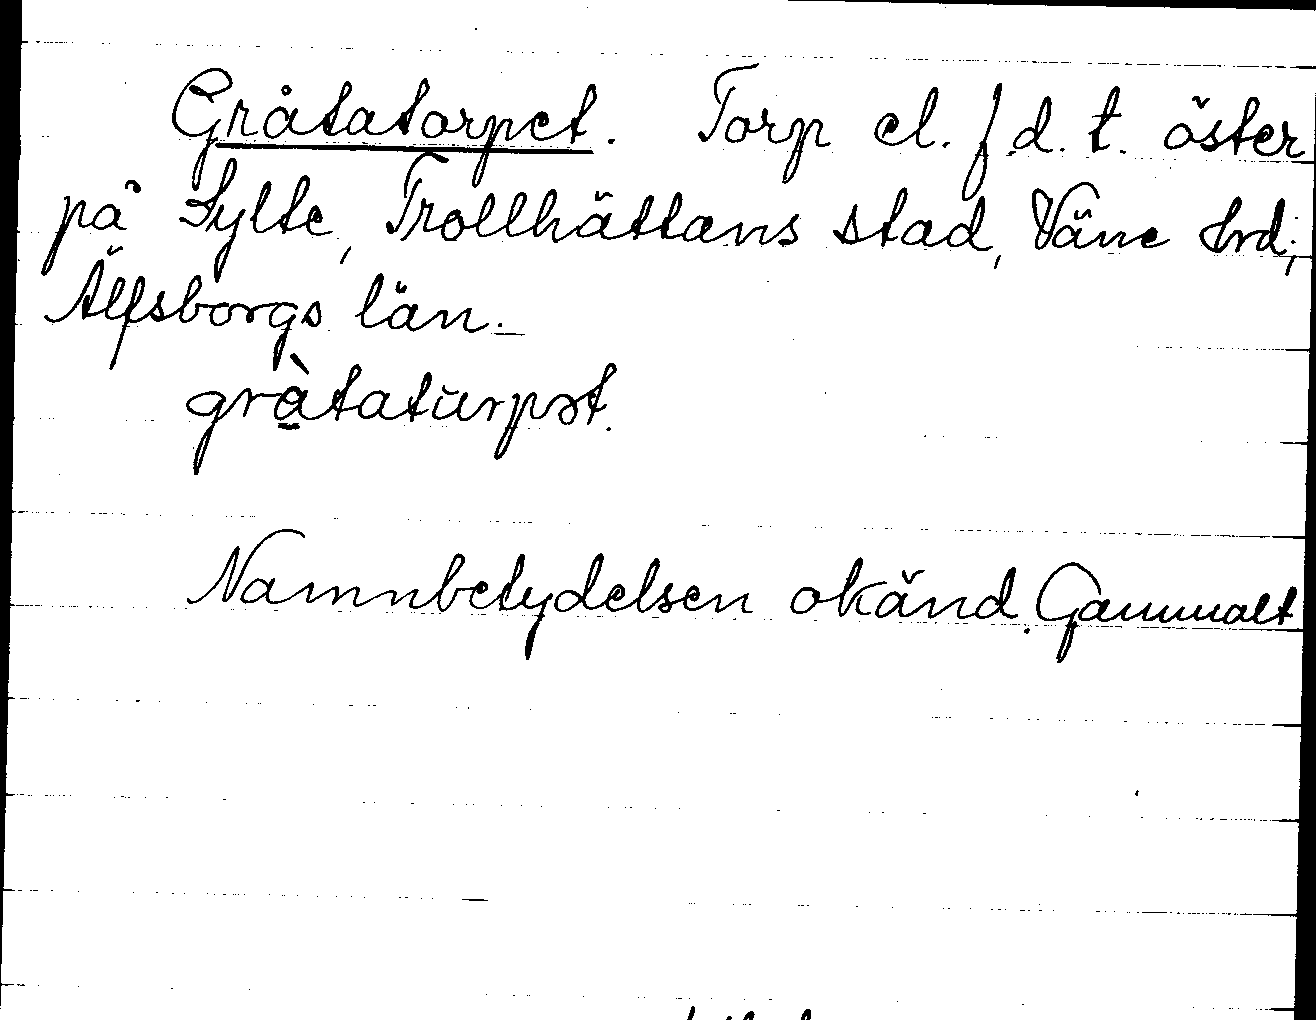 Gråtatorpet. Torp el. f.d. t. öster
på Sylte, Trollhättans stad, Väne hrd;
Älfsborgs län.
gràtatŭrpət.
Namnbetydelsen okänd. Gammalt